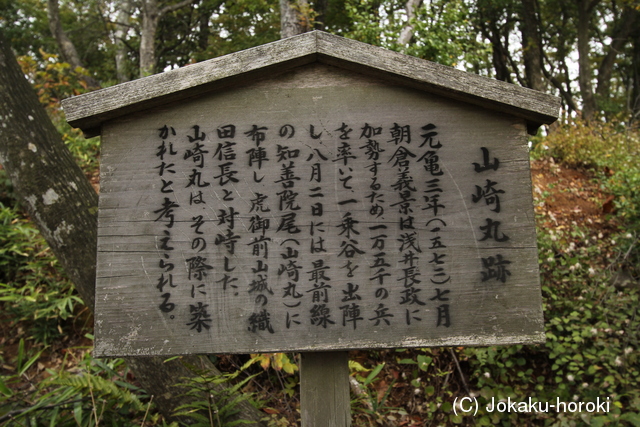 山崎丸跡
元亀三年（一五七二）七月
朝倉義景は浅井長政に
加勢するため、一万五千の兵
を率いて一乗谷を出陣
し、八月二日には最前線
の知善院尾（山崎丸）に
布陣し虎御前山城の織
田信長と対峙した。
山崎丸は、その際に築
かれたと考えられる。
(C) Jokaku-horoki